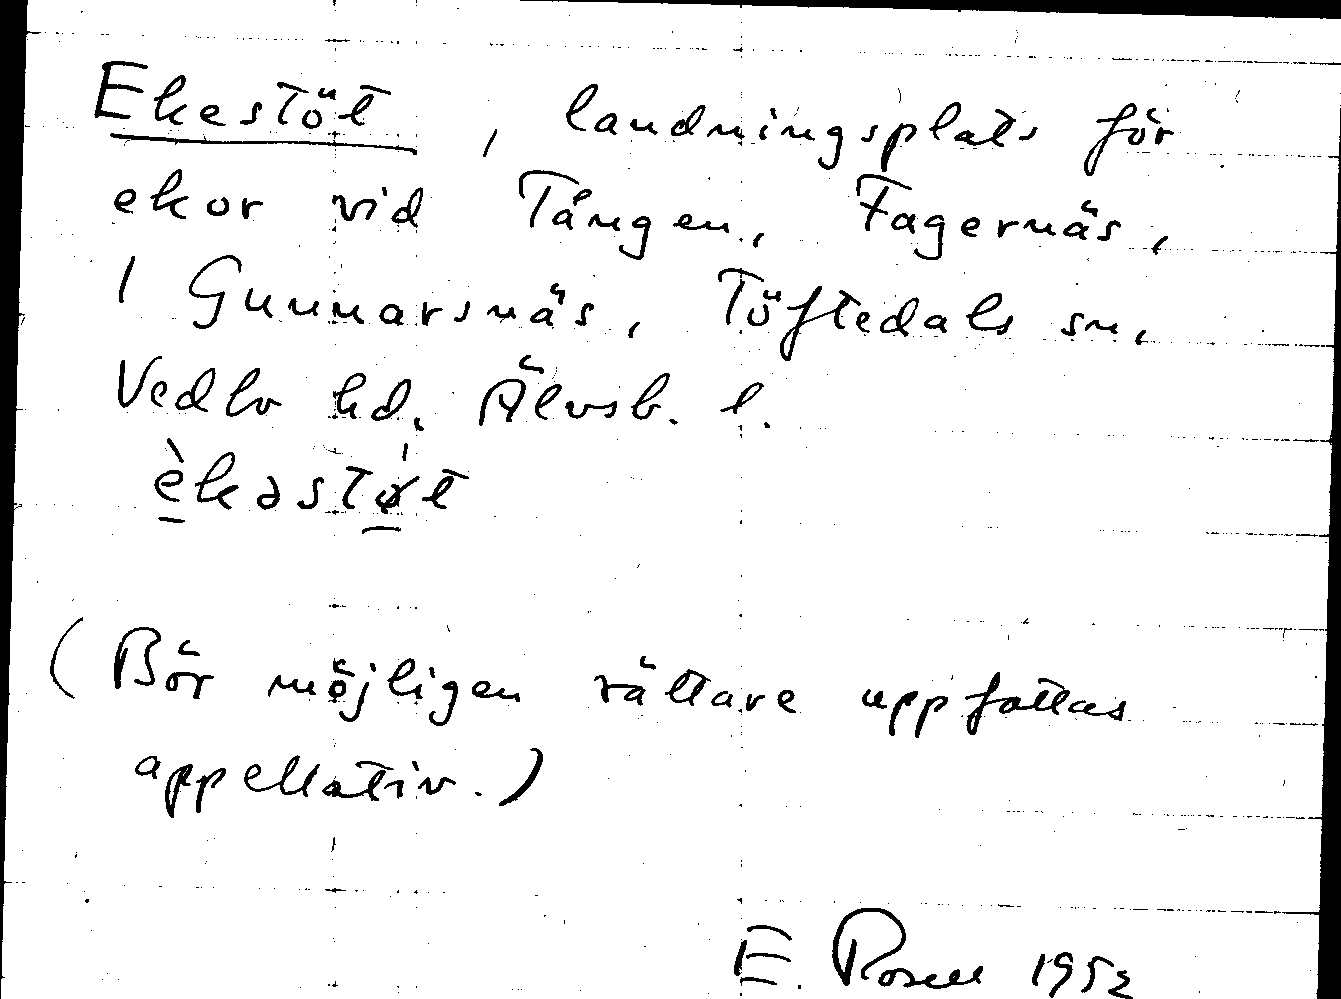 Ekestöt, landningsplats för
ekor vid Tången, Fagernäs,
i Gunnarsnäs, Töftedals sn,
Vedbo hd. Älvsb. l.
(Bör möjligen rättare uppfattas
appellativ.)
E. Rosell 1952